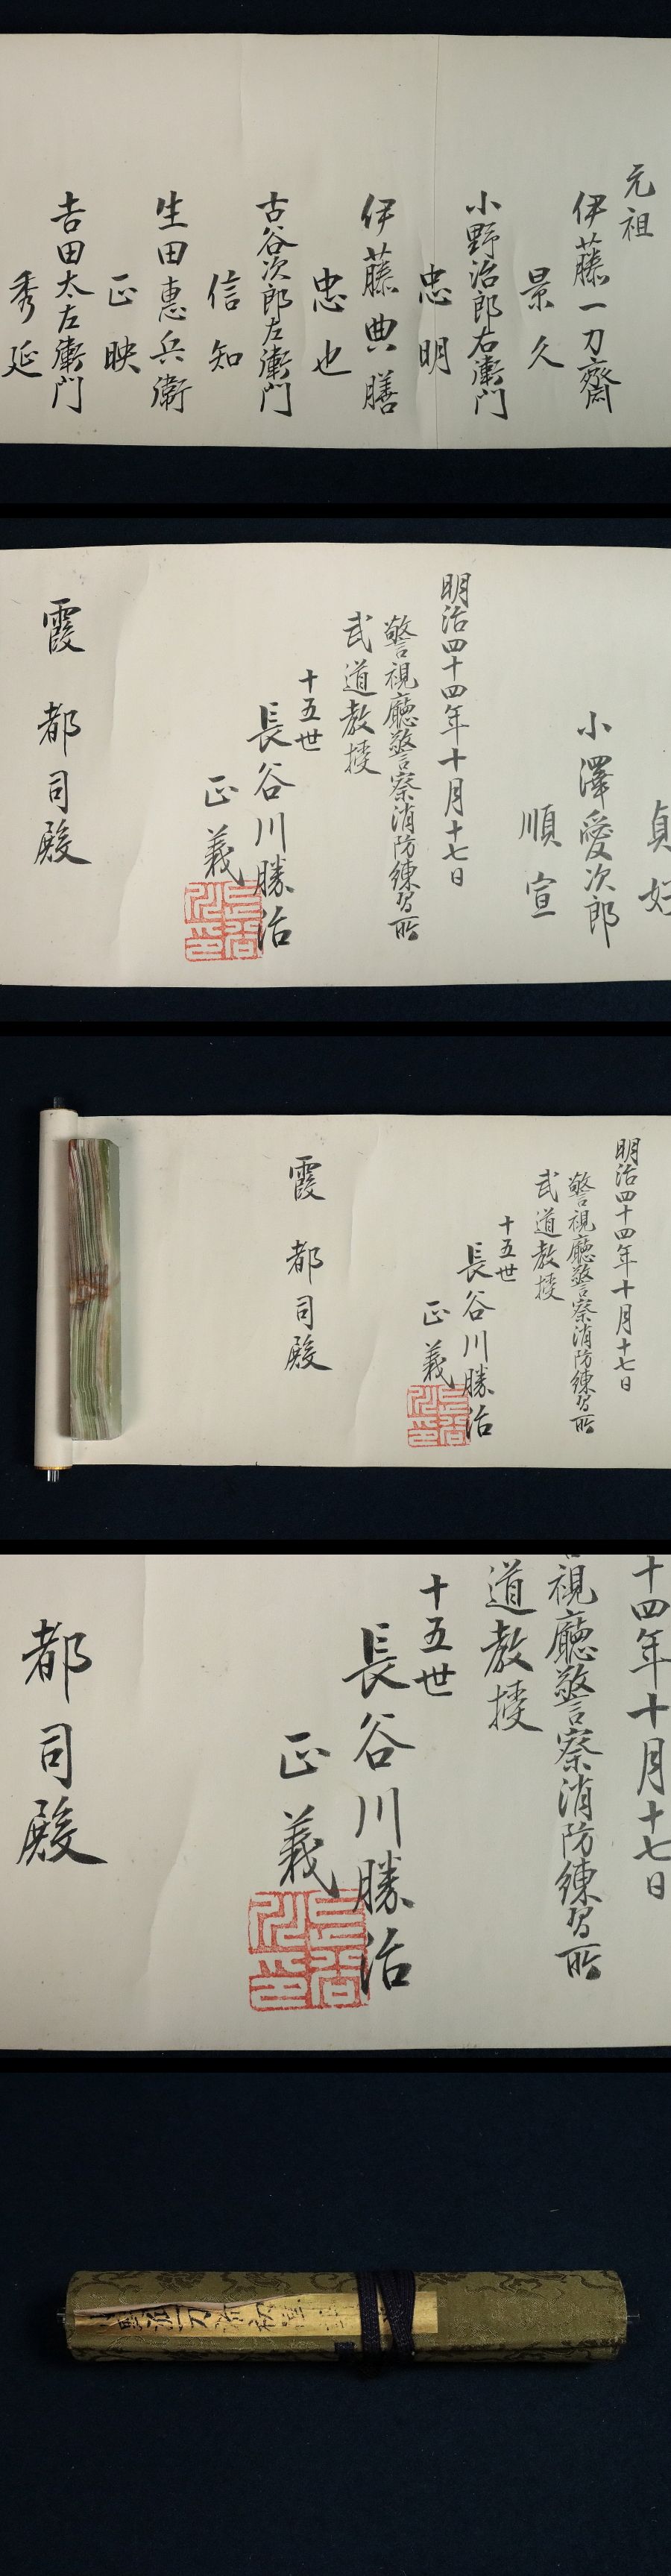 元祖
伊藤一刀齋
景久
小野治郎右衞門
忠明
伊藤典膳
忠也
古谷次郎左衞門
信知
生田惠兵衞
正映
吉田太左衞門
秀延
貞
小澤愛次郎
順宣
明治四十四年十月十七日
警視廳警察消防練習所
武道教授
十五世
長谷川勝治
正義
霞都司殿
明治四十四年十月十七日
警視廳警察消防練習所
武道教授
十五世
長谷川勝治
正義
霞都司殿
十四年十月十七日
視廳警察消防練習所
道教授
十五世
長谷川勝治
正義
都司殿
一刀